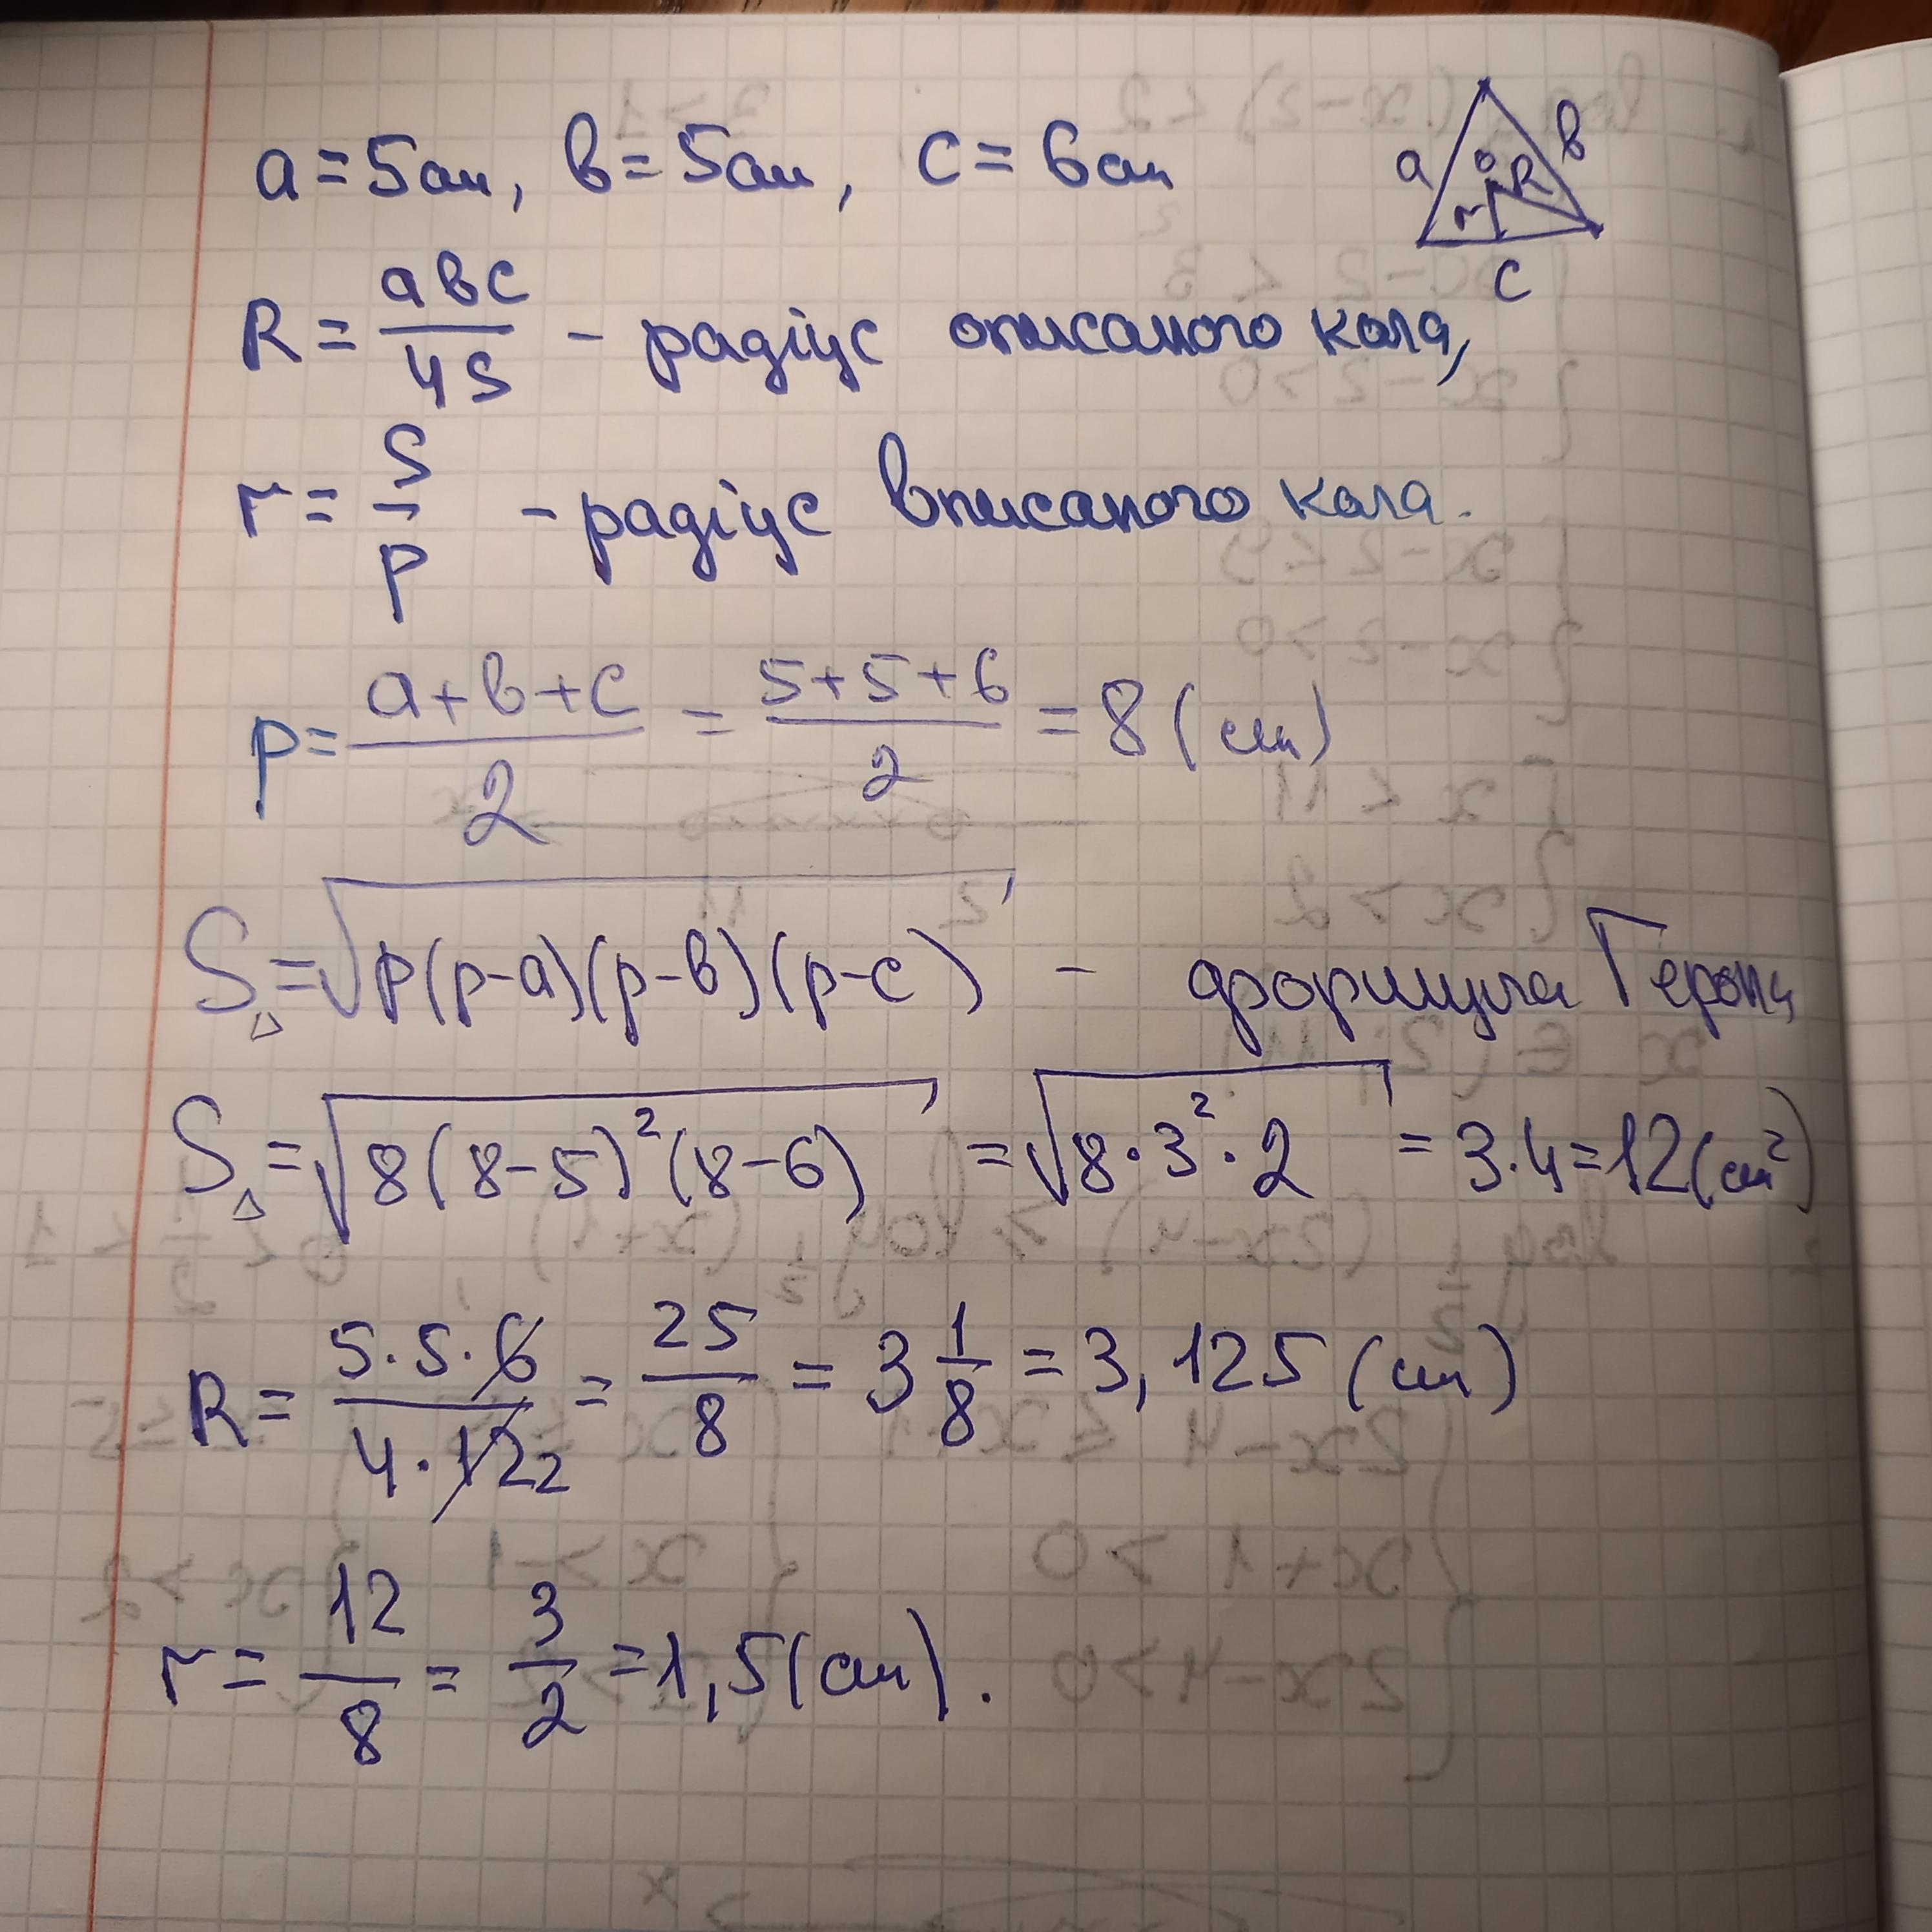 a = 5см, в = 5см, c = 6см
a в o R r c
R = aвc/4S - радіус описаного кола,
r = S/p - радіус вписаного кола.
p = (a+в+c)/2 = (5+5+6)/2 = 8 (см)
S△ = √(p(p-a)(p-в)(p-c)) - формула Герона
S△ = √(8(8-5)²(8-6)) = √(8·3²·2) = 3·4 = 12 (см²)
R = (5·5·6)/(4·12 2) = 25/8 = 3 1/8 = 3,125 (см)
r = 12/8 = 3/2 = 1,5 (см).